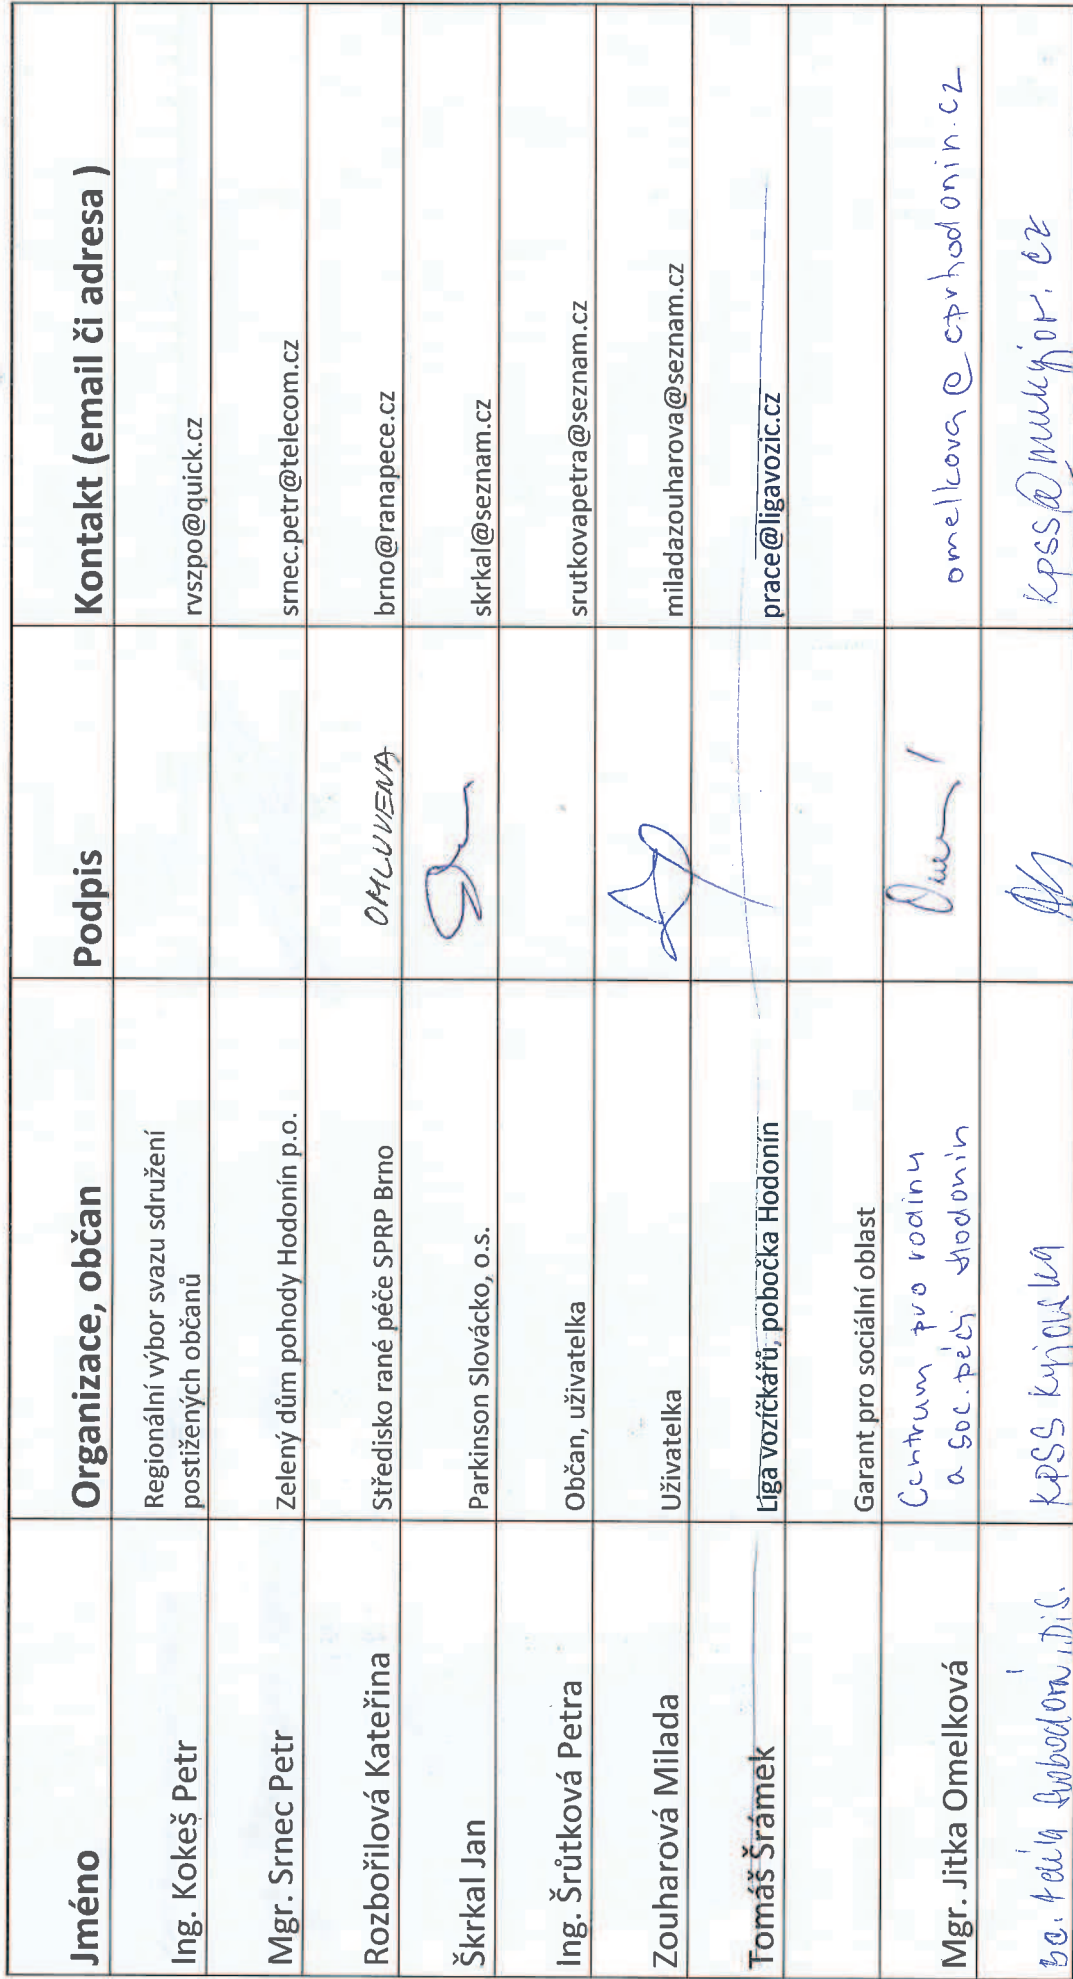 Jméno Organizace, občan Podpis Kontakt (email či adresa )
Ing. Kokeš Petr Regionální výbor svazu sdružení rvszpo@quick.cz
postižených občanů
Mgr. Srnec Petr Zelený dům pohody Hodonín p.o. srnec.petr@telecom.cz
Rozbořilová Kateřina Středisko rané péče SPRP Brno OMLUVENA brno@ranapece.cz
Škrkal Jan Parkinson Slovácko, o.s. skrkal@seznam.cz
Ing. Šrůtková Petra Občan, uživatelka srutkovapetra@seznam.cz
Zouharová Milada Uživatelka miladazouharova@seznam.cz
Tomáš Šrámek Liga vozíčkářů, pobočka Hodonín prace@ligavozic.cz
Garant pro sociální oblast
Mgr. Jitka Omelková Centrum pro rodinu omelkova@cprhodonin.cz
a soc. péči Hodonín
Bc. Svobodová, DiS. KPSS Kyjovska kpss@mukyjov.cz